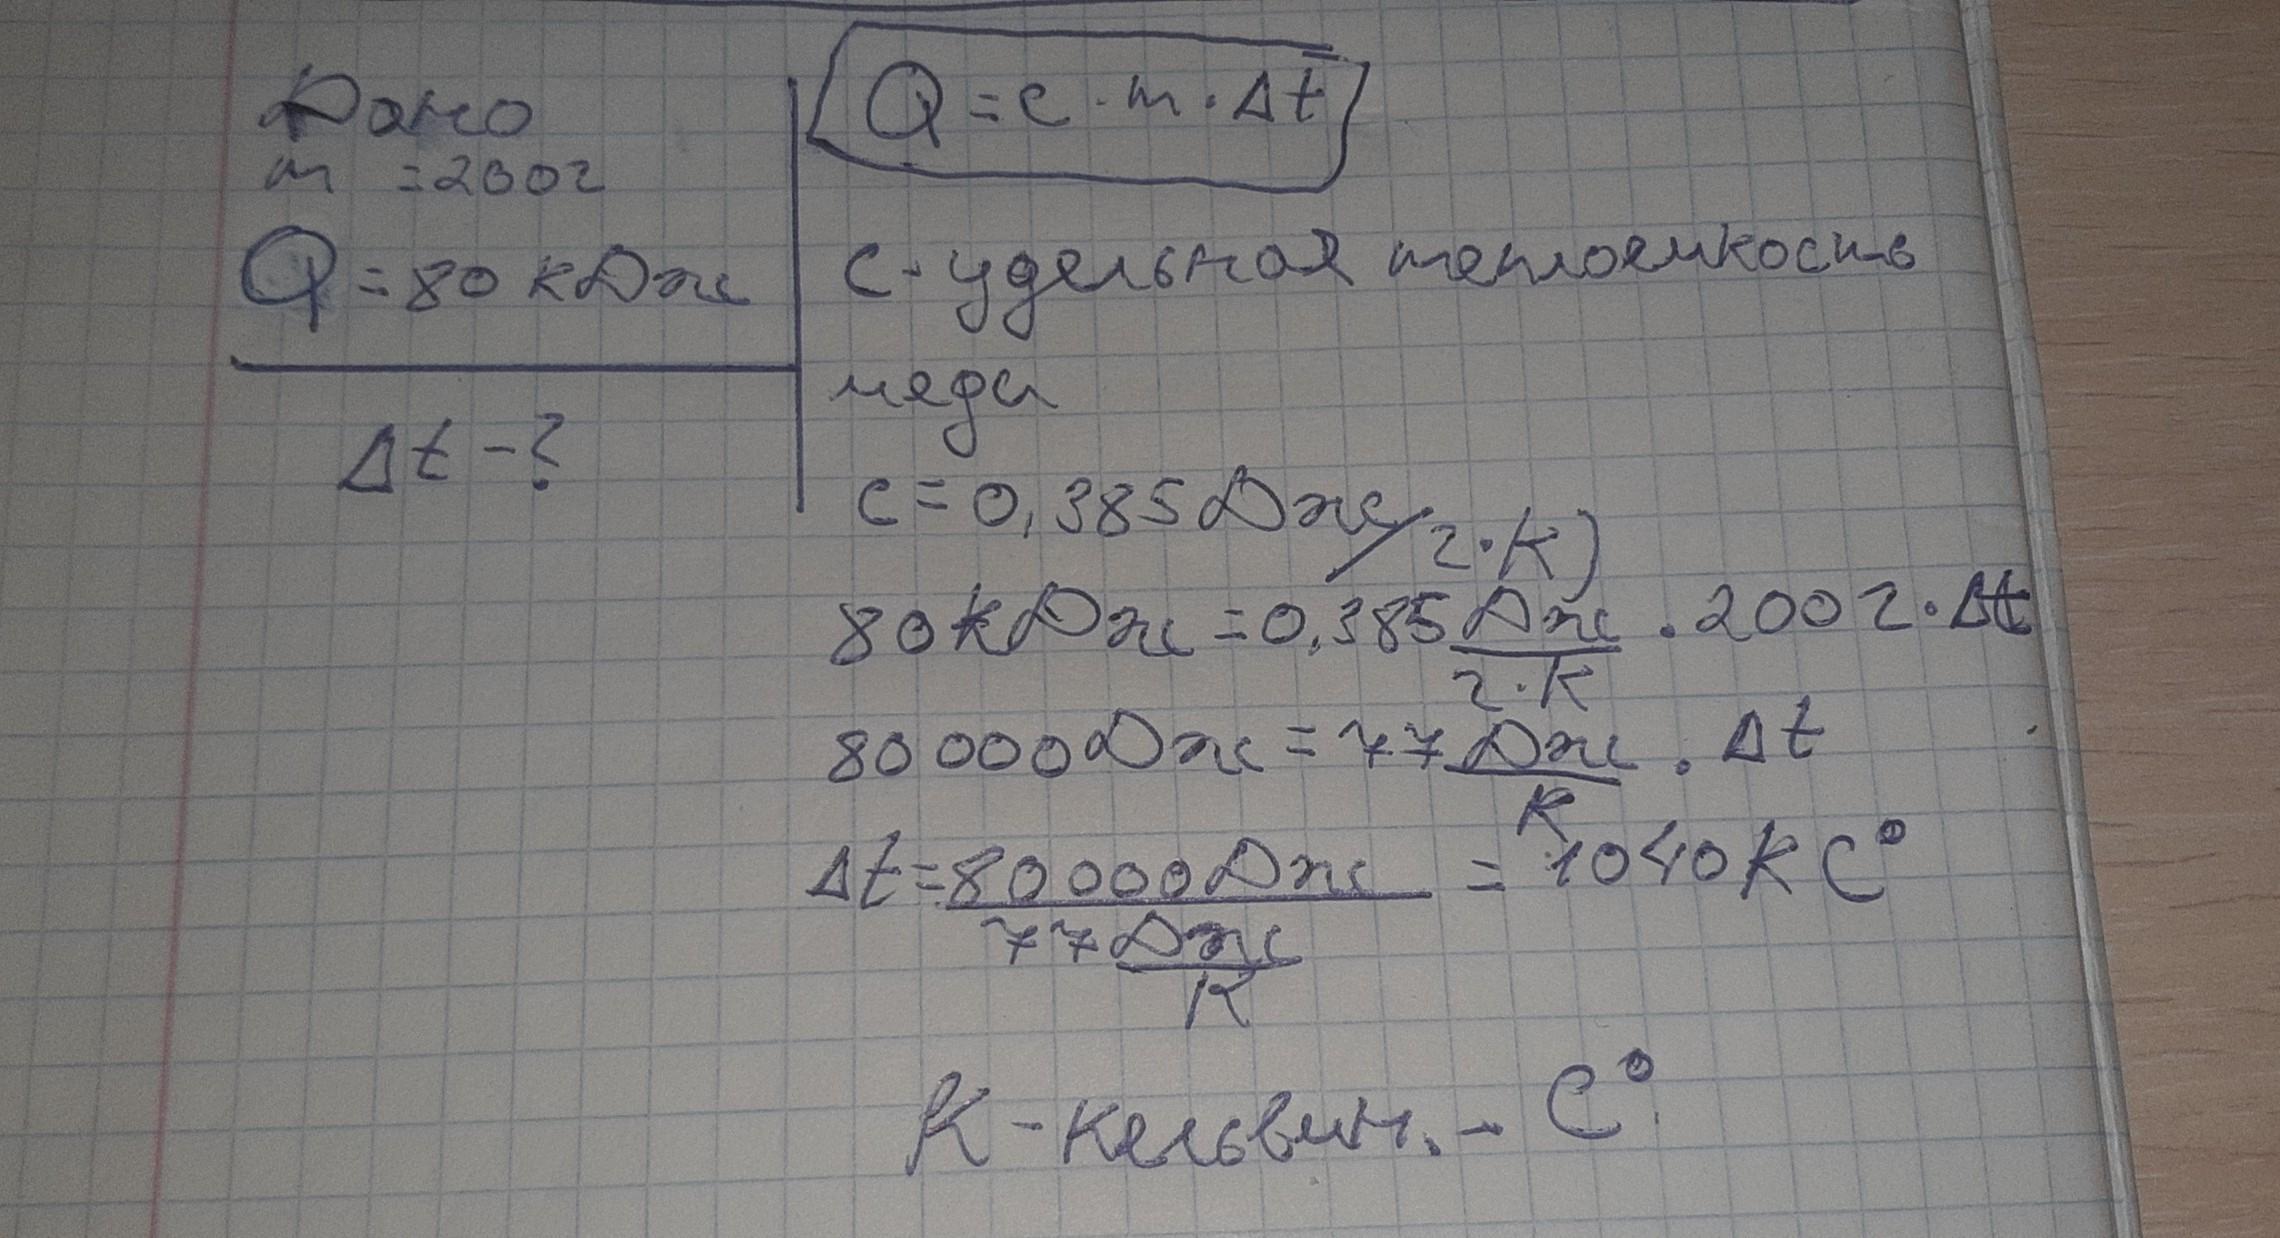 Дано
m = 200г
Q = 80 кДж
Δt - ?
Q = c · m · Δt
c - удельная теплоемкость
меди
c = 0,385 Дж/г·K)
80 кДж = 0,385 Дж/г·K · 200г · Δt
80 000 Дж = 77 Дж/K · Δt
Δt = 80 000 Дж / 77 Дж/K = 1040 K C°
K - кельвин. - C°